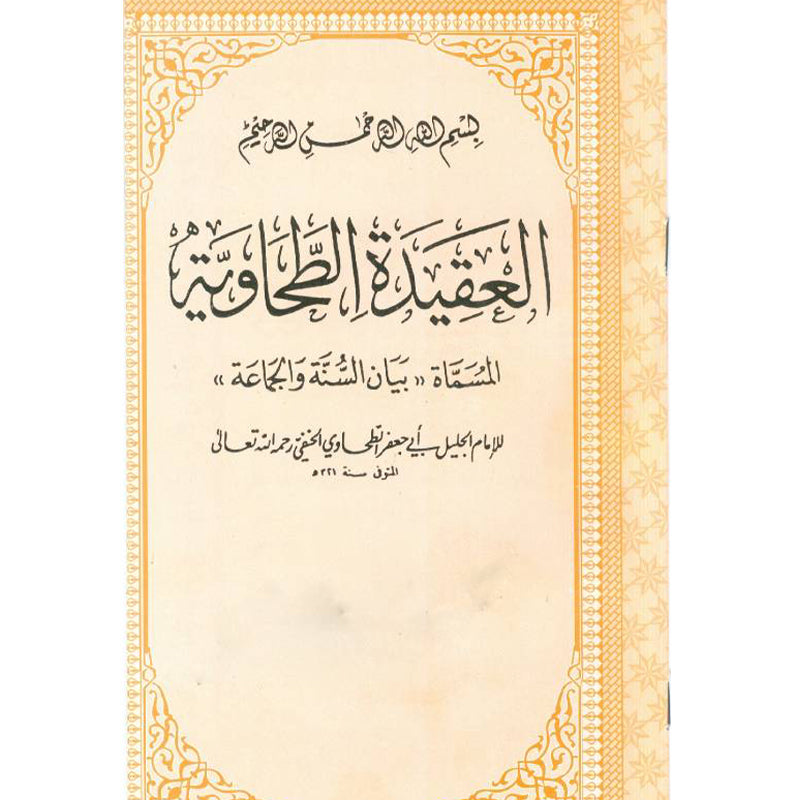 بسم الله الرحمن الرحيم
العَقِيدَة الطَّحَاوِيَّة
المُسَمَّاة « بَيَان السُّنَّة وَالجَمَاعَة »
للإمام الجليل أبي جعفر الطحاوي الحنفي رحمه الله تعالى
المتوفى سنة ٣٢١ ه